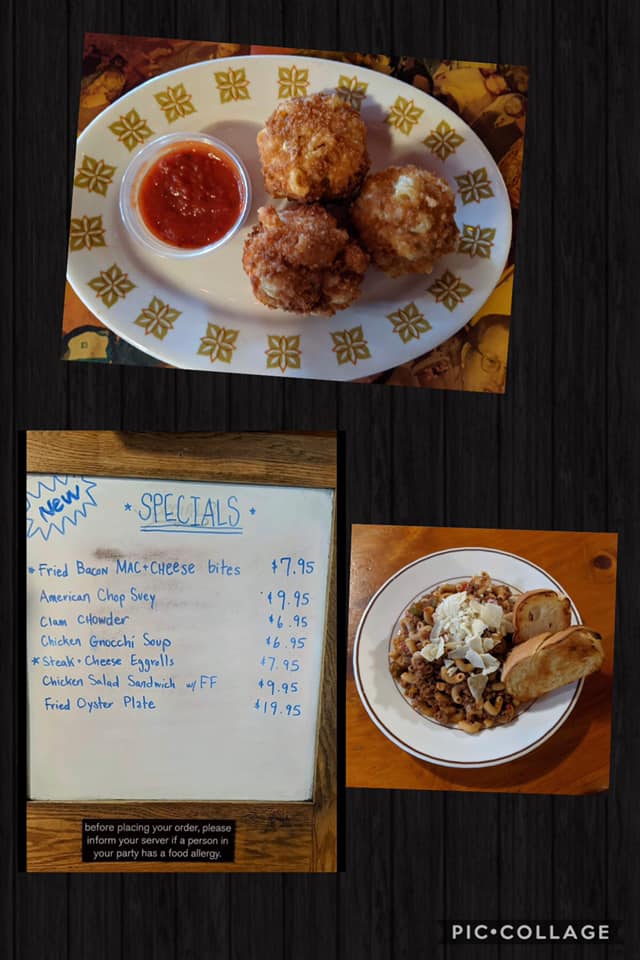 NEW
* SPECIALS *
* Fried Bacon MAC + CHEESE bites $7.95
American Chop Suey $9.95
Clam CHOWDER $6.95
Chicken Gnocchi Soup $6.95
* Steak + Cheese Eggrolls $7.95
Chicken Salad Sandwich w/ FF $9.95
Fried Oyster Plate $19.95
before placing your order, please
inform your server if a person in
your party has a food allergy.
PIC•COLLAGE